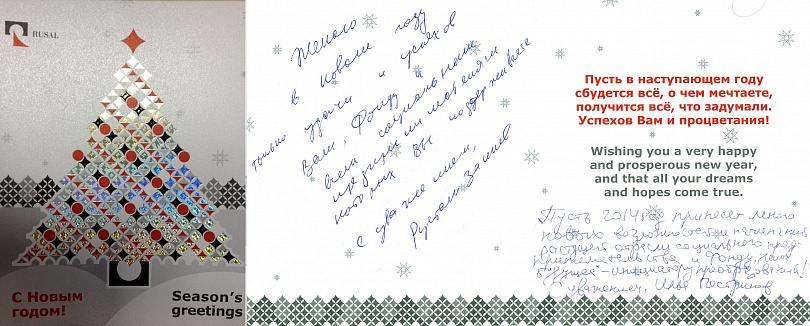 RUSAL
С Новым
годом!
Season's
greetings
Желаю
в Новом году
только удачи и успехов
Вам, Фонду и
всем социальным
предпринимателям
которых Вы поддерживаете
С уважением,
Рустам
Пусть в наступающем году
сбудется всё, о чем мечтаете,
получится всё, что задумали.
Успехов Вам и процветания!
Wishing you a very happy
and prosperous new year,
and that all your dreams
and hopes come true.
Пусть 2014 год принесет много
новых возможностей
растущей отрасли социального пред-
принимательства и Фонду "Наше
будущее" – инициатору преобразований!
С уважением, Илья